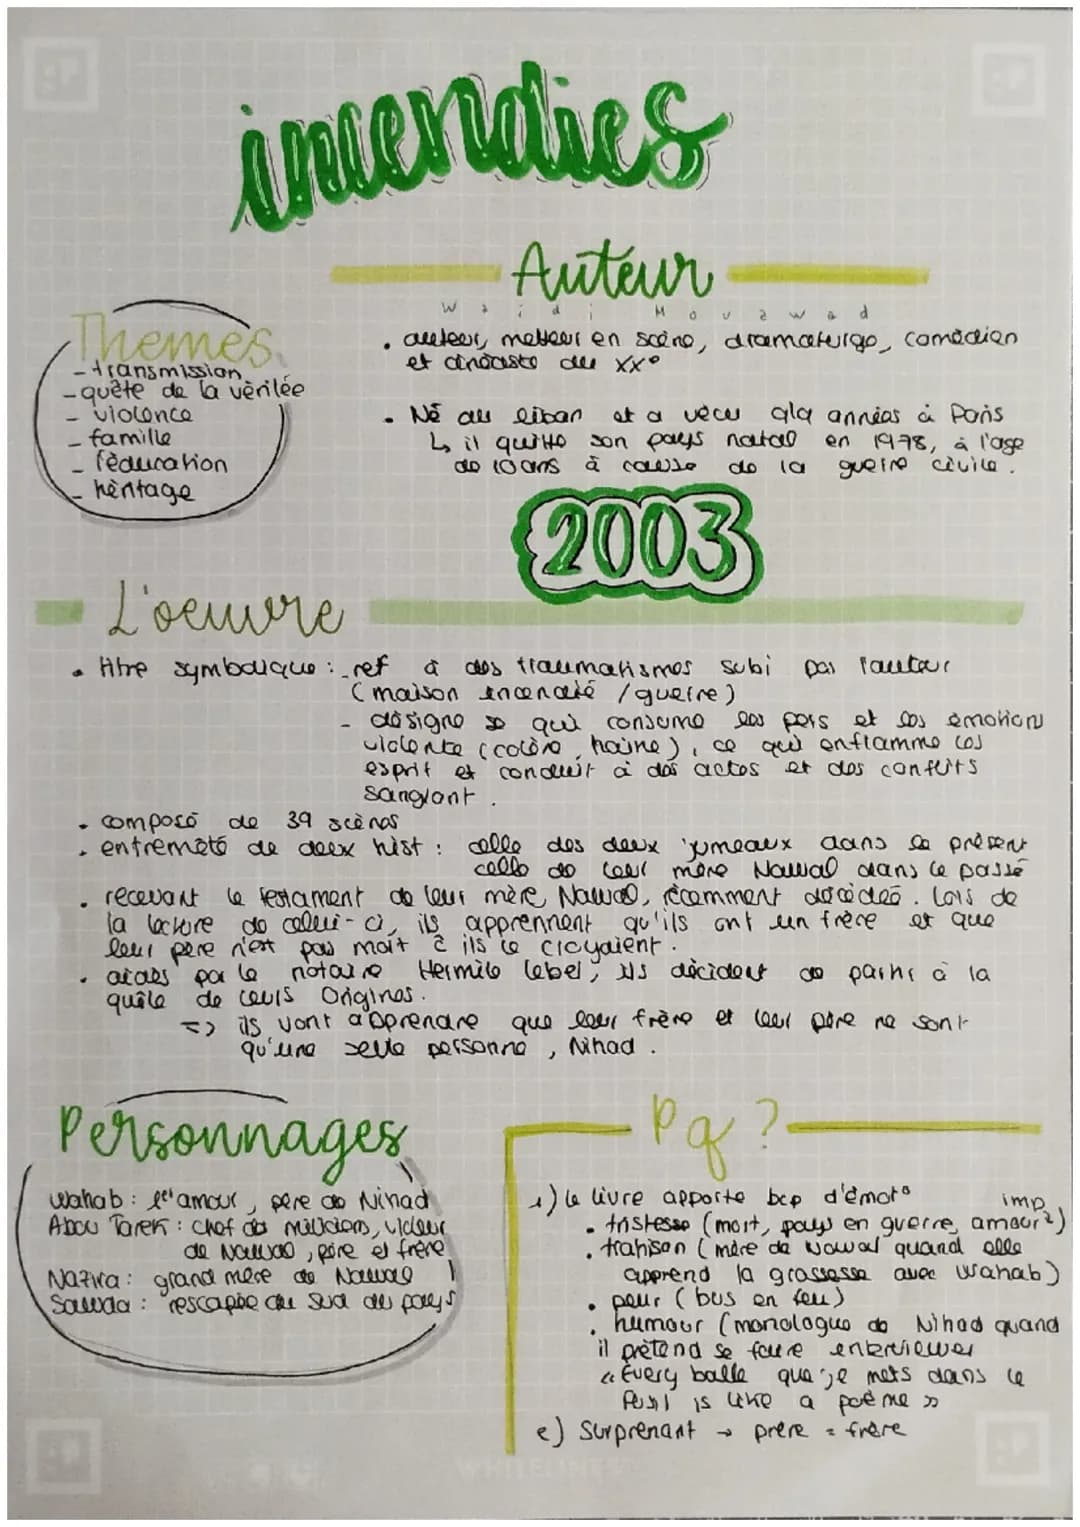 incendies
Auteur
Wajdi Mouawad
Themes
- transmission
- quête de la vèrilée
- violence
- famille
- l'èducation
- hèritage
• auteur, metteur en scène, dramaturge, comèdien
et cinéaste du XXe
• Né au liban et a vécu qlq années à Paris
↳ il quitte son pays natal en 1978, à l'age
de 10 ans à cause de la guerre civile.
2003
L'oeuvre
• titre symbolique : - ref à des traumatismes subi par l'auteur
(maison incendié / guerre)
- désigne se qui consume les pers et les émotions
violente (colère, haine), ce qui enflamme les
esprit et conduit à des actes et des conflits
sanglant.
• composé de 39 scènes
• entremêté de deux hist : celle des deux jumeaux dans le présent
celle de leur mère Nawal dans le passé
• recevant le testament de leur mère, Nawal, rècemment décèdée. Lors de
la lecture de celui-ci, ils apprennent qu'ils ont un frère et que
leur père n'est pas mort ils le croyaient.
• aidés par le notaire Hermile Lebel, ils dècident de partir à la
quête de leurs Origines.
=> ils vont apprendre que leur frère et leur père ne sont
qu'une seule personne, Nihad.
Personnages
Wahab : 1er amour, père de Nihad
Abou Tarek : chef des miliciens, violeur
de Nawal, père et frère
Nazira : grand mère de Nawal
Sawda : rescapée du Sud du pays
Pq ?
1) le livre apporte bcp d'émot° imp
• tristesse (mort, pays en guerre, amour)
• trahison (mère de Nawal quand elle
apprend la grossesse avec Wahab)
• peur (bus en feu)
• humour (monologue de Nihad quand
il prétend se faire enterviewer
« Every balle que je mets dans le
fusil is like a poème »
e) Surprenant → prère = frère
WHITELINES